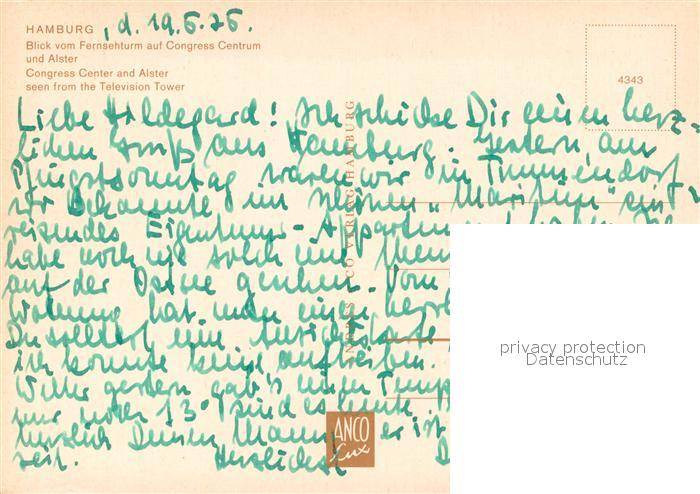 HAMBURG , d. 19.5.75.
Blick vom Fernsehturm auf Congress Centrum
und Alster
Congress Center and Alster
seen from the Television Tower
4343
Liebe Hildegard! Ich schicke Dir einen herz-
lichen Gruß aus Hamburg. Gestern, am
Pfingstsonntag waren wir in Timmendorf
wo Bekannte im neuen "Maritim" ein
reizendes Eigentums-Appartement haben. Ich
habe noch nie solch eine Men
auf der Ostsee gesehen. Vom
Wohnung hat man einen herrl
Du solltest eine Ansichtskarte
ich konnte keine auftreiben.
Wetter gestern gab's einen Temp
nur noch 13° sind es heute.
herzlich Deinen Mann, er ist
zeit. Herzlichst D
ANDRES + CO VERLAG HAMBURG
ANCO
Lux
privacy protection
Datenschutz